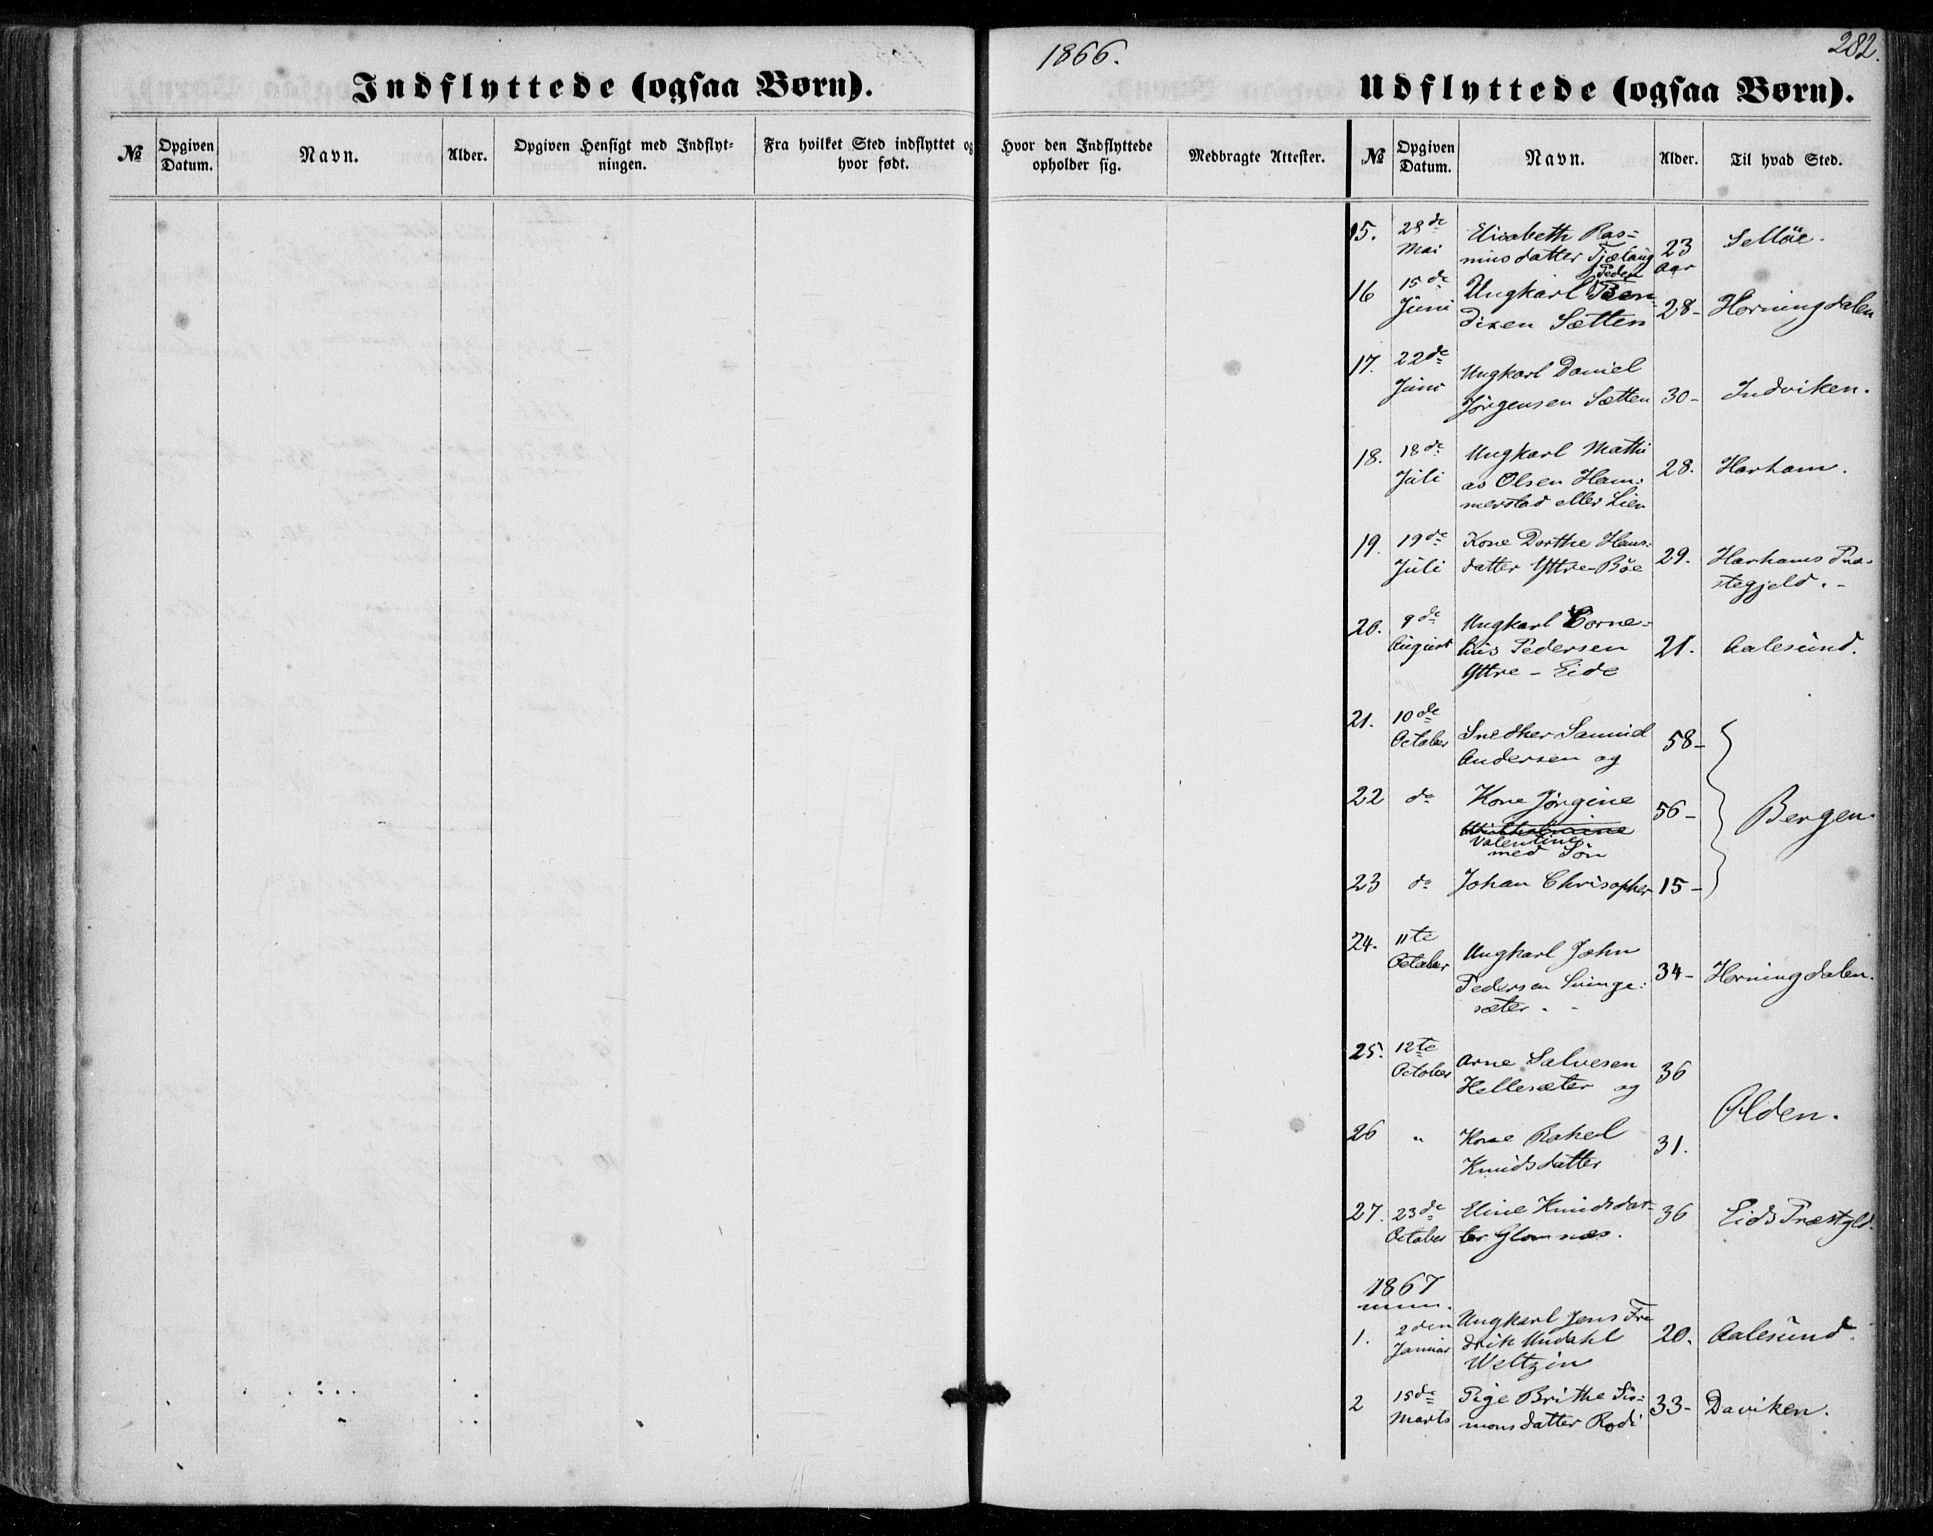 1866.
282.
Indflyttede (ogsaa Børn).
Udflyttede (ogsaa Børn).
№
Opgiven Datum.
Navn.
Alder.
Opgiven Hensigt med Indflyt-
ningen.
Fra hvilket Sted indflyttet og
hvor født.
Hvor den Indflyttede
opholder sig.
Medbragte Attester.
№
Opgiven Datum.
Navn.
Alder.
Til hvad Sted.
15. 28de Elisabeth Ras=
Mai musdatter Tjælaug 23 Aar Selløe.
16 15de Ungkarl Peder Ben-
Juni dixen Sætten 28- Horningdalen
17. 22de Ungkarl Daniel
Juni Jørgensen Sætten 30- Indviken.
18. 18de Ungkarl Mathi
Juli as Olsen Ham= 28. Harham.
merstad eller Lien
19. 19de Kone Dorthe Hans=
Juli datter Yttre-Bøe 29. Harhams Præ-
stegjeld.-
20. 9de Ungkarl Corne=
August lius Pedersen 21. Aalesund.
Yttre-Eide
21. 10de Snedker Samuel 58-
October Andersen og
22 do Kone Jørgine 56- Bergen.
Valentine
med Søn
23 do Johan Chrisopher 15-
24. 11te Ungkarl John
October Pedersen Svinge= 34- Horningdalen.
sæter.
25. 12te Arne Salvesen 36
October Hellesæter og
Olden.
26 " Kone Rakel 31.
Knudsdatter
27. 23de Eline Knudsdat- 36 Eids Præstgld.
October ter Glomnæs.
1867
1. 2den Ungkarl Jens Fre
Januar drik Undahl 20. Aalesund.
Weltzin
2 15de Pige Brithe Si=
Marts monsdatter Rodi 33- Daviken.